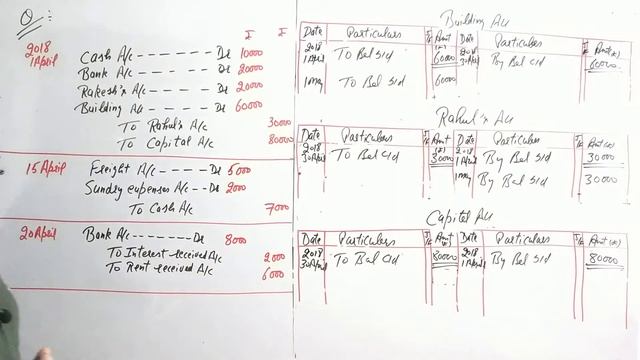 Q :-
₹ ₹
2018
1 April Cash A/c - - - - - - - Dr 10000
Bank A/c - - - - - - Dr 20000
Rakesh's A/c - - - - - Dr 20000
Building A/c - - - - - Dr 60000
To Rahul's A/c 30000
To Capital A/c 80000
15 April Freight A/c - - - - - Dr 5000
Sundry expenses A/c - - Dr 2000
To Cash A/c 7000
20 April Bank A/c - - - - - - - - Dr 8000
To Interest received A/c 2000
To Rent received A/c 6000
Building A/c
Date Particulars J/F Amt (₹) Date Particulars J/F Amt (₹)
2018 2018
1 April To Bal b/d 60000 30 April By Bal c/d 60000
1 may To Bal b/d 60000
Rahul's A/c
Date Particulars J/F Amt (₹) Date Particulars J/F Amt (₹)
2018 2018
30 April To Bal c/d 30000 1 April By Bal b/d 30000
1 may By Bal b/d 30000
Capital A/c
Date Particulars J/F Amt (₹) Date Particulars J/F Amt (₹)
2018 2018
30 April To Bal c/d 80000 1 April By Bal b/d 80000